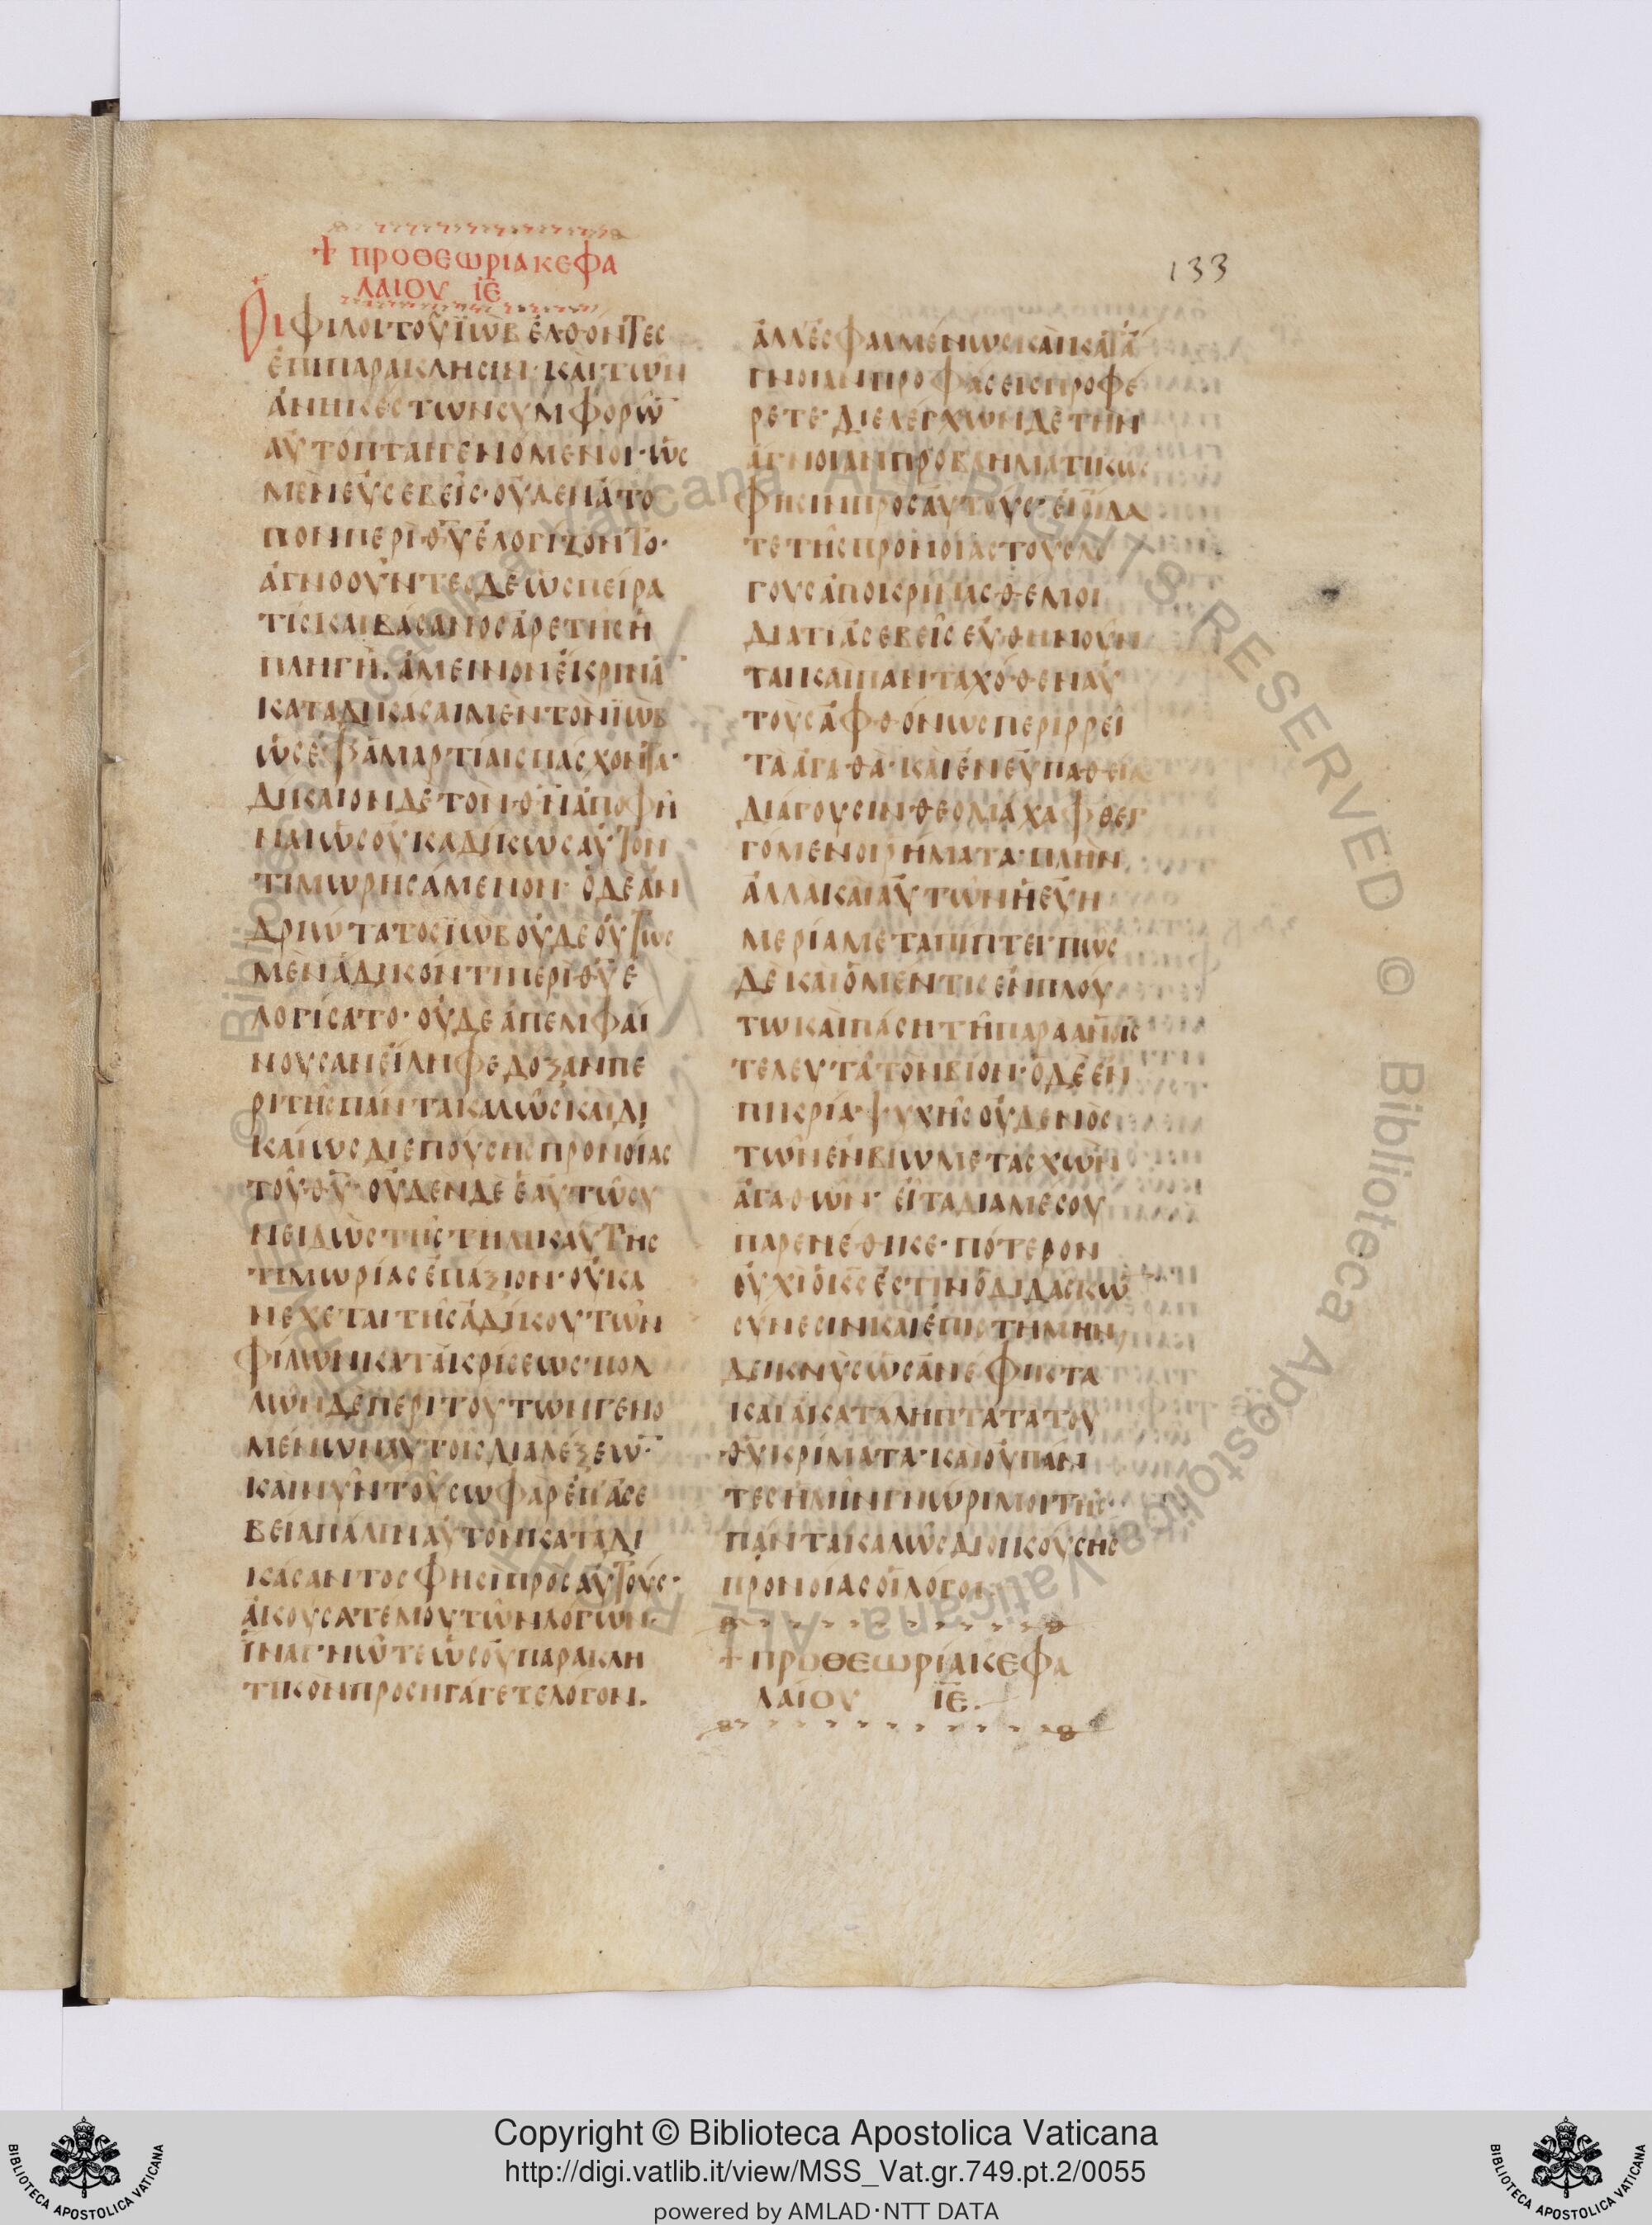 133
+ ΠΡΟΘΕΩΡΙΑ ΚΕΦΑ
ΛΑΙΟΥ ΙΕ
Οἱ φίλοι τοῦ ϊὼβ ἐλθόντες
ἐπι παρακλησιν και τῶν
ἀνηκέστων συμφορῶ̅
αὐτόπται γενόμενοι· ὡς
μὲν εὐσεβεῖς· οὐδὲν ἄτο
πον περι θ̅υ̅ ἐλογίζοντο·
ἀγνοοῦντες δε ὡς πεῖρα
τίς και βάσανος ἀρετῆς ἡ
πληγή. ἄμεινον ἔκρινα̅
καταδικάσαι μὲν τον ϊὼβ
ὡς ἐφ ἁμαρτίαις πάσχοντα·
δίκαιον δε τον θ̅ν̅ ἀποφῆ
ναι ὡς οὐκ αδίκως αὐτον
τιμωρησάμενον· ὁ δε ἀν
δριώτατος ϊὼβ οὐδε οὕτως
μὲν ἄδικόν τι περι θ̅υ̅ ἐ
λογίσατο· οὐδε ἀπεμφαί
νουσαν εἴληφε δόξαν πε
ρι τῆς πάντα καλῶς και δι
καίως διεπούσης προνοίας
τοῦ θ̅υ̅· οὐδεν δε ἑαυτῶ συ
νειδὼς τῆς τηλικαύτης
τιμωρίας ἐπάξιον· οὐκ ἀ
νέχεται τῆς ἀδίκου τῶν
φίλων κατακρίσεως· πολ
λῶν δε περι τούτων γενο
μένων αὐτοῖς διαλέξεω̅·
και νῦν τοῦ σωφὰρ ἐπ ἀσε
βεία πάλιν αὐτον καταδι
κάσαντος φησι προς αὐτούς·
ἀκούσατέ μου τῶν λόγων·
ἵνα γνῶτε ὡς οὐ παρακλη
τικον προσηγάγετε λόγον.
ἀλλ ἐσφαλμένως και κατ ἄ
γνοιαν προφάσεις προφέ
ρετε· διελέγχων δε την
ἄγνοιαν προβληματικῶς
φησιν προς αὐτούς· ἐπ
τε τῆς προνοίας τους λο
γους ἀποκρίνασθε μοι
διατι ἀσεβεῖς εὐθηνοῦν
ται και πανταχόθεν αὐ
τοὺς ἀφθόνως περιρρεῖ
τὰ ἀγαθά· και ἐν εὐπαθεία
διάγουσιν θεομάχα φθεγ
γόμενοι ρήματα· πλὴν
ἀλλα και αὐτῶν ἡ εὐη
μερία μεταπίπτει· πως
δε και ὁ μέν τις ἐν πλού
τω και πάση τῆ παρα α̅ν̅ο̅ι̅ς̅
τελευτᾶ τον βίον· ὁ δὲ ἐν
πικρία ψυχῆς οὐδενος
τῶν ἐν βίω μετασχὼν
ἀγαθῶν· εἶτα δια μέσου
παρενέθηκε· πότερον
οὐχι ὁ κ̅ς̅ ἐστιν ὁ διδάσκω̅
σύνεσιν και ἐπιστήμην
δεικνὺς ὡς ἀνέφικτα
και ἀκατάληπτα τα του
θ̅υ̅ κρίματα· και οὐ πάν
τες ἡμῖν γνώριμοι τῆς
πάντα καλῶς διοικούσης
προνοίας οἱ λόγοι
+ ΠΡΟΘΕΩΡΊΑ ΚΕΦΑ
ΛΑΊΟΥ ΙΕ.
Copyright © Biblioteca Apostolica Vaticana
http://digi.vatlib.it/view/MSS_Vat.gr.749.pt.2/0055
powered by AMLAD·NTT DATA
BIBLIOTECA APOSTOLICA VATICANA
BIBLIOTECA APOSTOLICA VATICANA